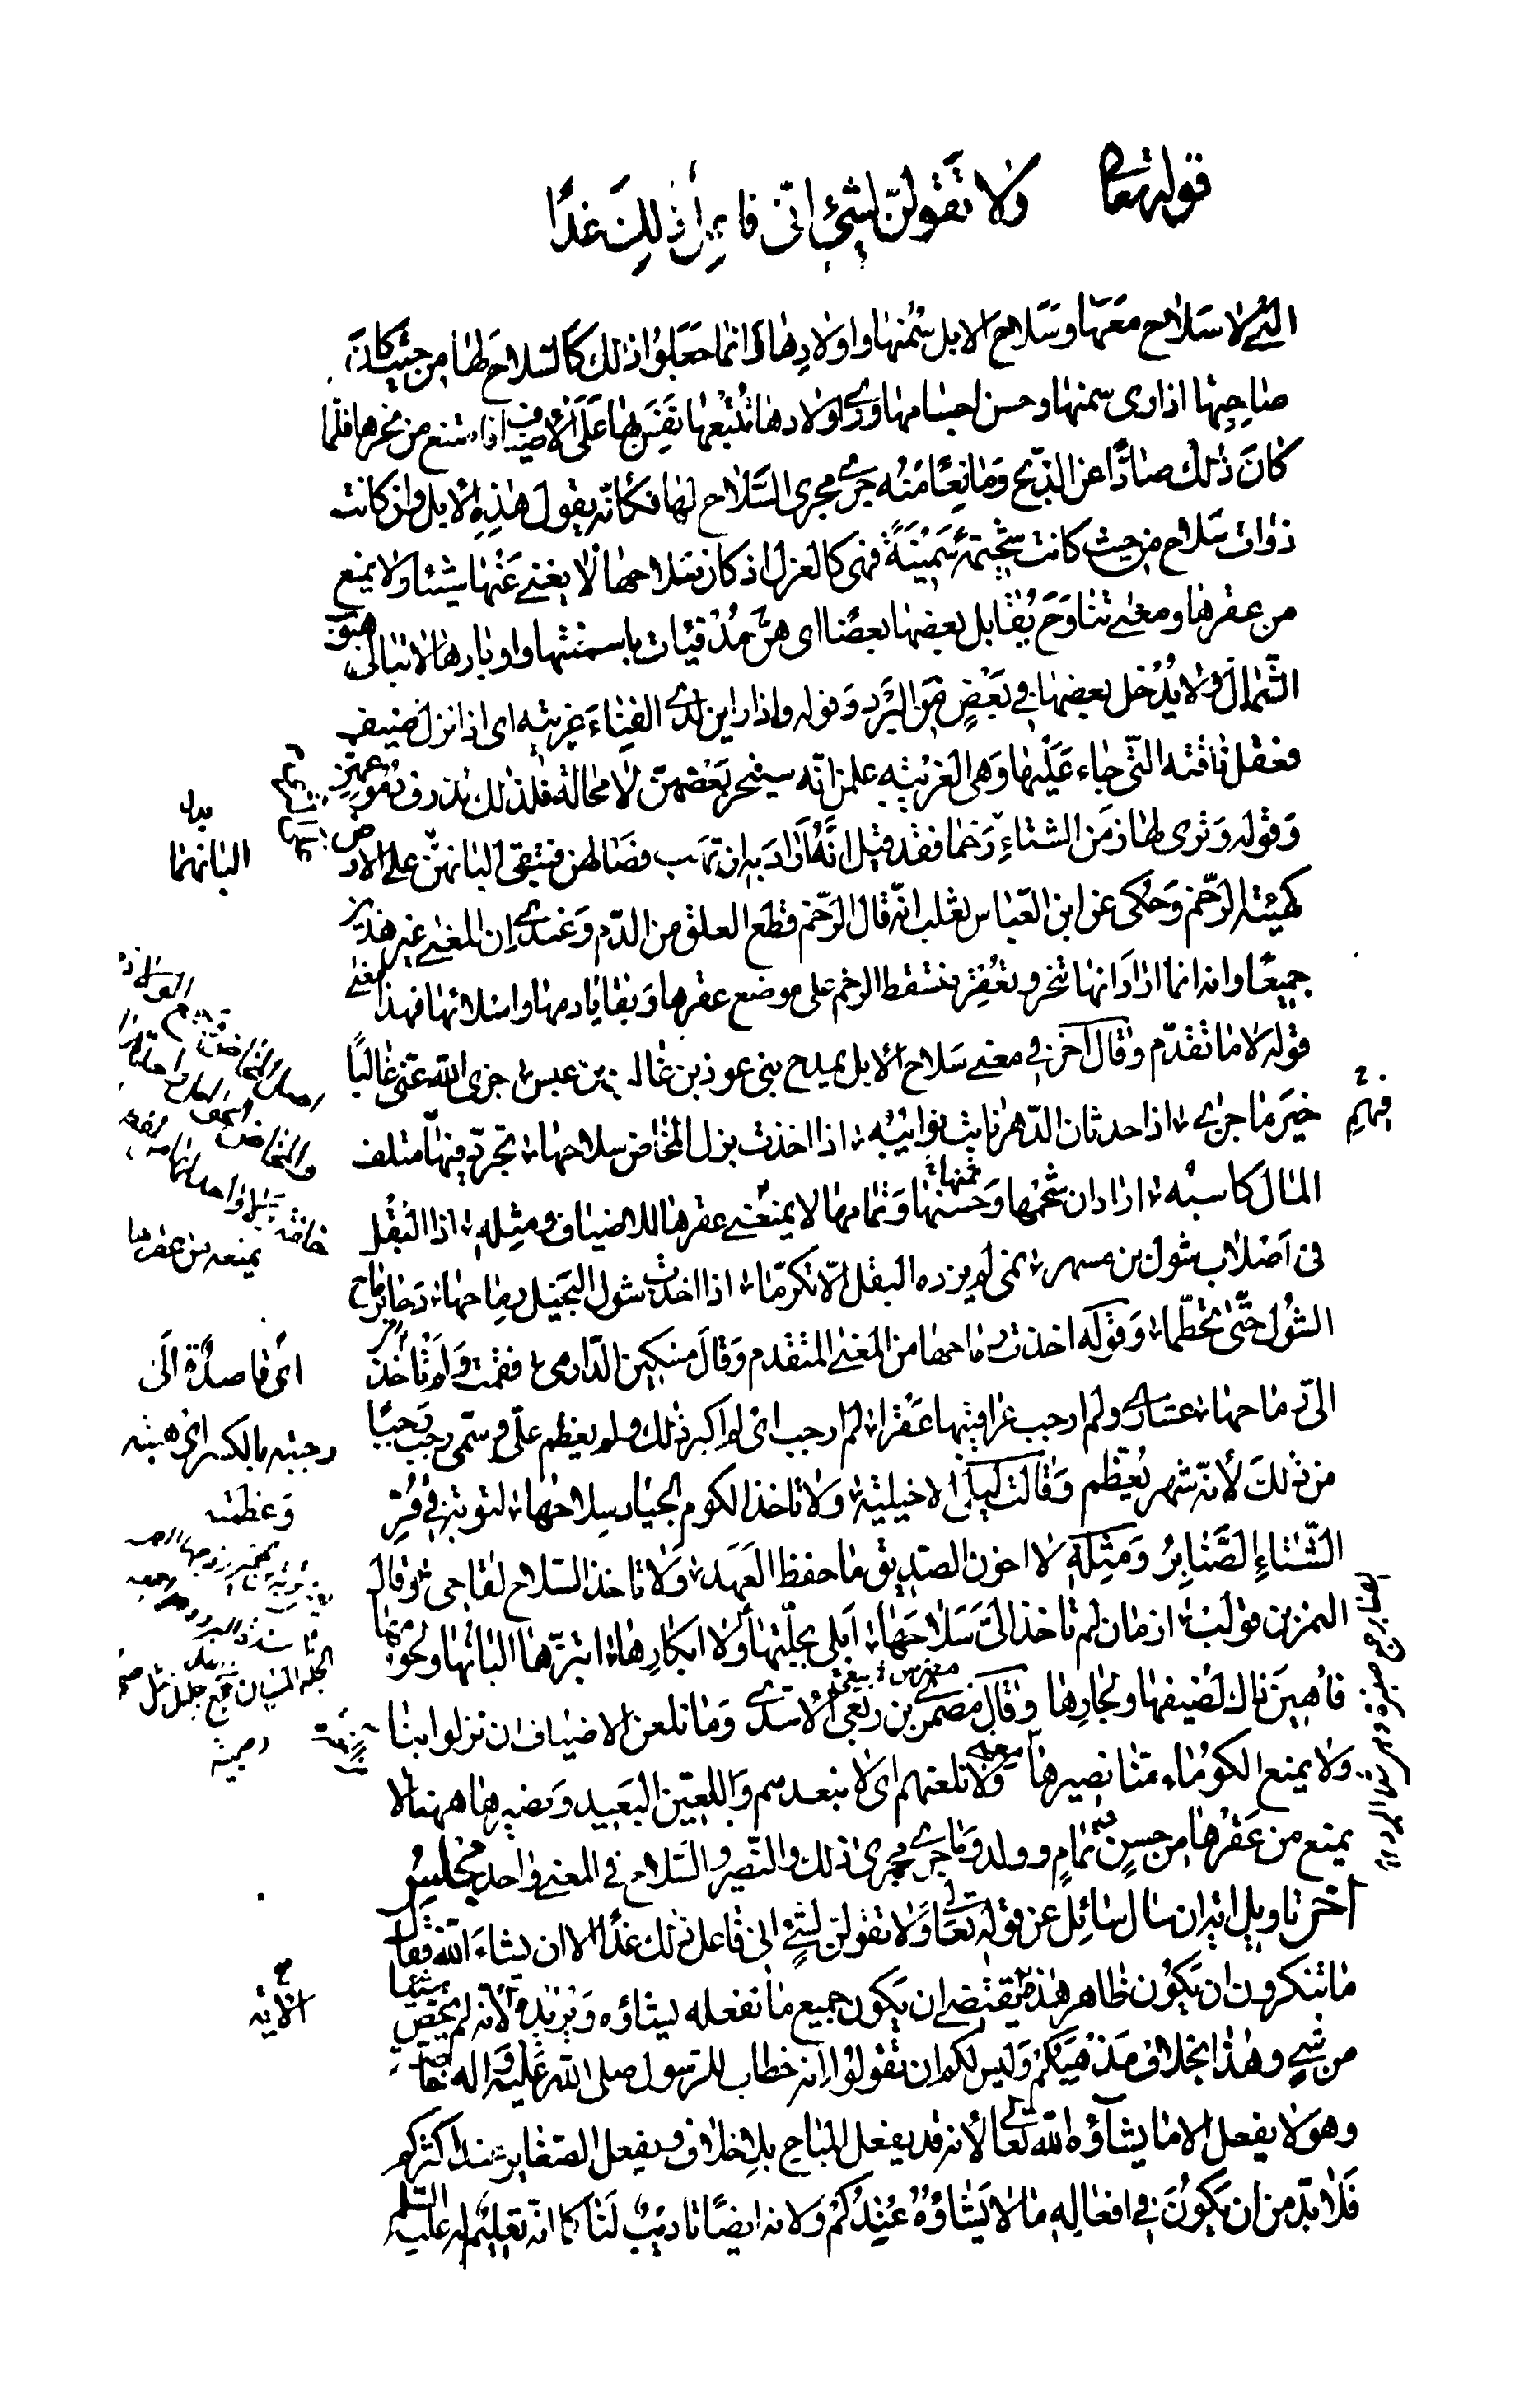 قوله تعالى ولا تقولن لشيء اني فاعل ذلك غدا
التي لا سلاح معها وسلاح الابل سمنها واولادها وانما جعلوا ذلك كالسلاح لها من حيث كان
صاحبها اذا رى سمنها وحسن اجسامها وراى اولادها تتبعها نفس بها على الاضياف فامتنع من نحرها فلما
كان ذلك صادا عن الذبح ومانعا منه جرى مجرى السلاح لها فكانه يقول هذه الابل وان كانت
ذوات سلاح من حيث كانت شحيمة سمينة فهى كالعزل اذ كان سلاحها لا يغنى عنها شيئا ولا يمنع
من عقرها ومعنى تناوح يقابل بعضها بعضا اى هن مدفئات باسمنتها واوبارها لا تبالى هبوب
الشمال ولا يدخل بعضها فى بعض من البرد وقوله واذا راين لدى الفناء غريبه اى اذا نزل ضيف
فعقل ناقته التى جاء عليها وهى الغريبه علمن انه سينحر بعضهن لا محالة فلذلك تذرف دموعهن
وقوله وترى لها زمن الشتاء رخما فقد قيل انه اراد به ان تهب فصالهن فتبقى البانهن على الارض
كهيئة الرخم وحكى عن ابن العباس ثعلب انه قال الرخم قطع العلق من الدم وعندى ان المعنى غير هذين
جميعا وانه انما اراد انها تنحر وتعقر فتسقط الرخم على موضع عقرها وبقايا دمها واسلائها فهذا معنى
قوله لا ما تقدم وقال اخر فى معنى سلاح الابل يمدح بنى عوذ بن غالب بن عبس جزى الله عنى غالبا
خير ما جزى اذا حدثان الدهر نابت نوائبه اذا اخذت بزل المخاض سلاحها تجرد فيها متلف
المال كاسبه اراد ان شحمها وحسنها وتمامها لا يمنعنى عقرها للاضياف ومثله اذا البقل
فى اصلاب شول بن مسهر نمى لم يزده البقل الا تكرما اذا اخذت شول البخيل رماحها دحا برماح
الشول حتى تحطما وقوله اخذت رماحها من المعنى المتقدم وقال مسكين الدارمى فقمت ولم تاخذ
الى رماحها عشارى ولم ارجب عراقيبها عقرا لم ارجب اى لم اكبر ذلك ولم يعظم على وسمى رجب رجبا
من ذلك لانه شهر يعظم وقالت ليلى الاخيلية ولا تاخذ الكوم الجياد سلاحها لتوبة فى قر
الشتاء الصنابر ومثله لا اخون الصديق ما حفظ العهد ولا تاخذ السلاح لقاحى وقال
النمر بن تولب ازمان لم تاخذ الى سلاحها ابلى بجلتها ولا ابكارها ابتزها البانها ولحومها
فاهين ذاك لضيفها ولجارها وقال مضرس بن ربعى الاسدى وما نلعن الاضياف ان نزلوا بنا
ولا يمنع الكوماء منا نصيرها ولا نلعنهم اى لا نبعدهم واللعين البعيد ونصيرها ههنا ما لا
يمنع من عقرها من حسن تمام وولد وما جرى مجرى ذلك والنصير والسلاح فى المعنى واحد مجلس
اخر تاويل اية ان سال سائل عن قوله تعالى ولا تقولن لشئ انى فاعل ذلك غدا الا ان يشاء الله فقال
ما تنكرون ان يكون ظاهر هذه يقتضى ان يكون جميع ما نفعله يشاؤه ويريده لانه لم يخص شيئا
من شئ وهذا بخلاف مذهبكم وليس لكم ان تقولوا انه خطاب للرسول صلى الله عليه واله خاصة
وهو لا يفعل الا ما يشاؤه الله تعالى لانه قد يفعل المباح بلا خلاف ويفعل الصغاير عند اكثركم
فلا بد من ان يكون فى افعاله ما لا يشاؤه عندكم ولانه ايضا تاديب لنا كما انه تعليم له عليه السلم
بدل
البانها
فيهم
يمنعه من عقرها
اى قاصدة الى
رجبته بالكسر اى هبته
وعظمته
الاية